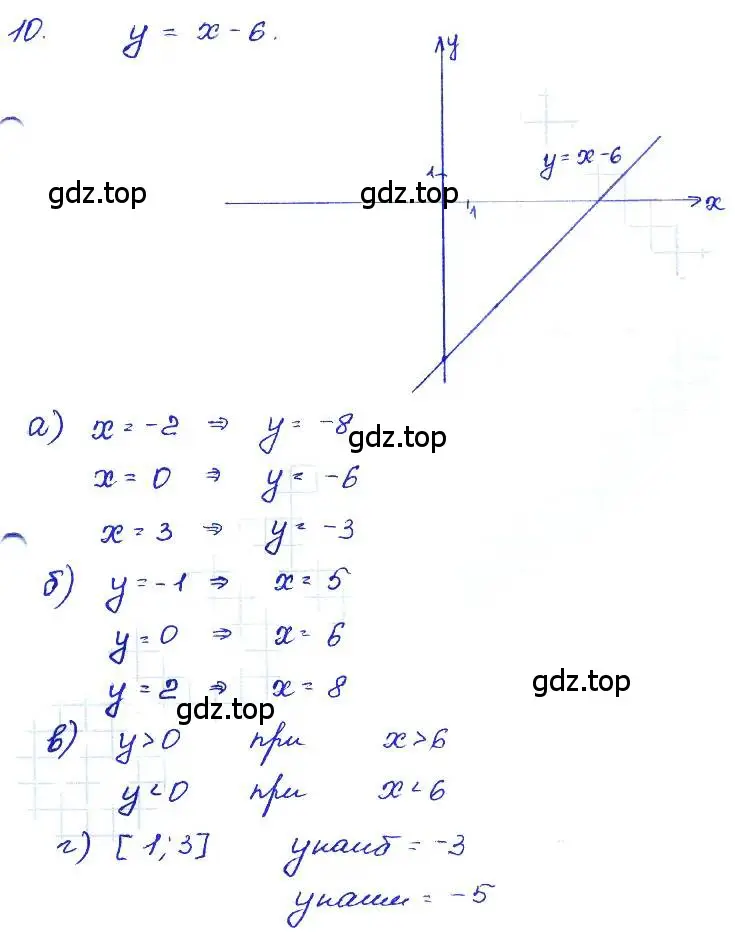 10. y = x - 6.
y
y = x - 6
1
gdz.top gdz.top
1 x
а) x = -2 ⇒ y = -8
gdz.top
x = 0 ⇒ y = -6
x = 3 ⇒ y = -3
б) y = -1 ⇒ x = 5
y = 0 ⇒ x = 6
y = 2 ⇒ x = 8
gdz.top gdz.top
в) y > 0 при x > 6
y < 0 при x < 6
г) [1; 3] yнаиб = -3
yнаим = -5